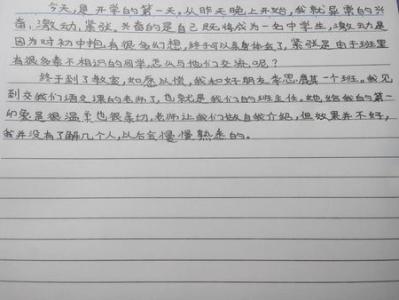 今天,是开学的第一天,从昨天晚上开始,我就异常的兴
奋,激动,紧张。兴奋的是自己既将成为一名中学生,激动是
因为对初中抱有很多幻想,终于可以亲身体会了,紧张是由于班里
有很多素不相识的同学,怎么与他们交流呢?
终于到了教室,如愿以偿,我和好朋友李思
到交我们语文课的老师了,也就是我们的班主任。她给我的第一
印象是很温柔也很亲切,老师让我们做自我介绍,但效果并不好,
我并没有了解几个人,以后会慢慢熟悉的。